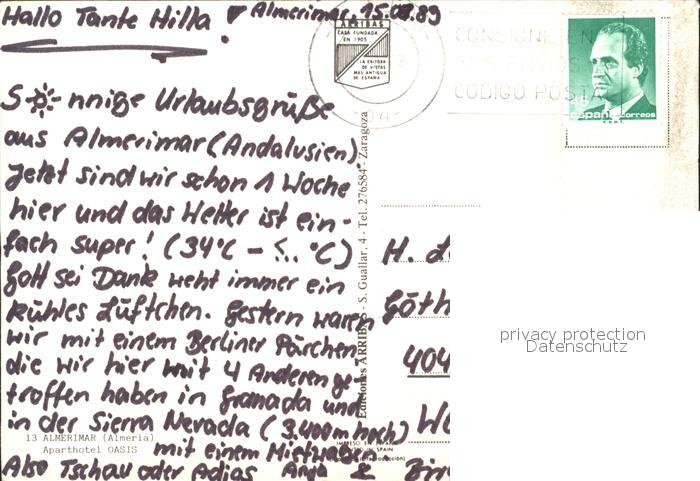 Hallo Tante Hilla! Almerimar, 15.08.89
S☼nnige Urlaubsgrüße
aus Almerimar (Andalusien).
Jetzt sind wir schon 1 Woche
hier und das Wetter ist ein-
fach super! (34°C - ... °C)
Gott sei Dank weht immer ein
kühles Lüftchen. Gestern waren
wir mit einem Berliner Pärchen
die wir hier mit 4 Anderen ge-
troffen haben in Granada und
in der Sierra Nevada (3.400m hoch)
mit einem Mietwa
Also Tschau oder Adios Anja &
13 ALMERIMAR (Almeria)
Aparthotel OASIS
ARRIBAS
CASA FUNDADA
EN 1905
LA EDITORA
DE VISTAS
MAS ANTIGUA
DE ESPAÑA
Ediciones ARRIBAS - S. Guallar, 4 - Tel. 276584 - Zaragoza
CONSIGNE EN
SUS ENVIOS
CODIGO POSTA
españa correos
F.N.M.T.
H. L
Göth
404
privacy protection
Datenschutz